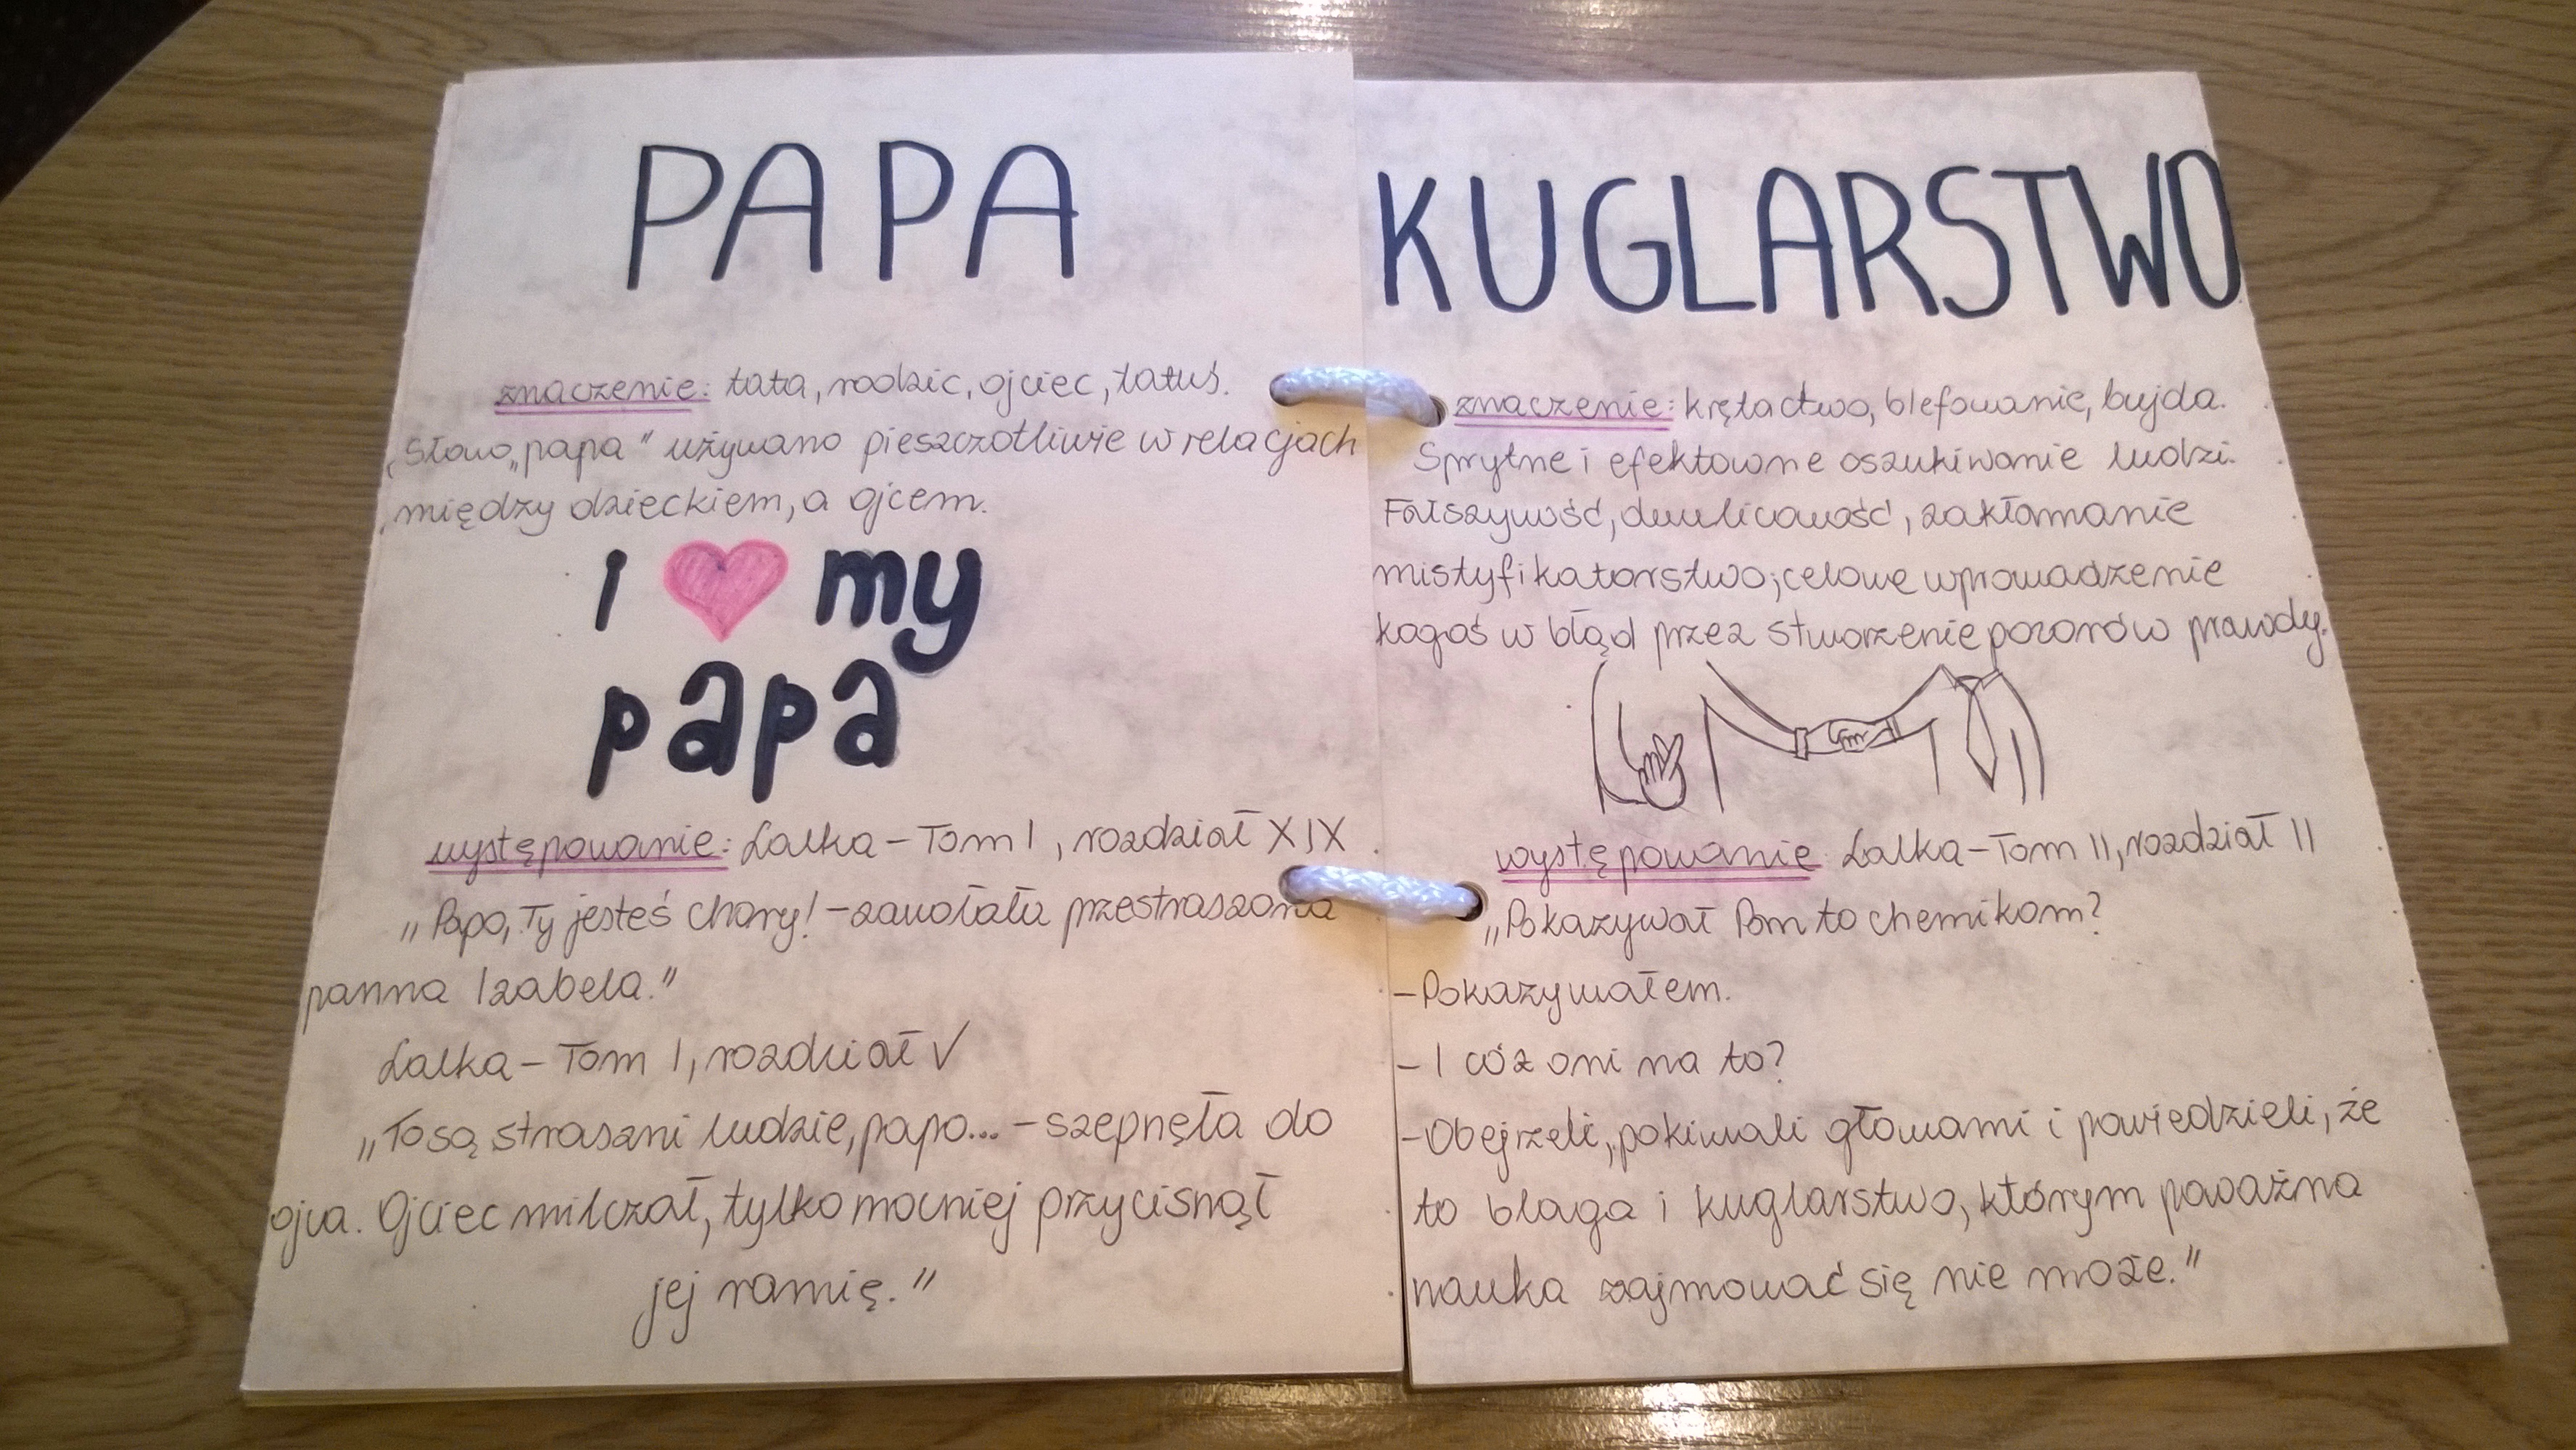 PAPA
znaczenie: tata, rodzic, ojciec, tatuś.
Słowo „papa" używano pieszczotliwie w relacjach
między dzieckiem, a ojcem.
I my
papa
występowanie: Lalka - Tom I, rozdział XIX
„Papo, Ty jesteś chory! - zawołała przestraszona
panna Izabela."
Lalka - Tom I, rozdział V
„To są straszni ludzie, papo... - szepnęła do
ojca. Ojciec milczał, tylko mocniej przycisnął
jej ramię."
KUGLARSTWO
znaczenie: krętactwo, blefowanie, bujda.
Sprytne i efektowne oszukiwanie ludzi.
Fałszywość, dwulicowość, zakłamanie
mistyfikatorstwo; celowe wprowadzenie
kogoś w błąd przez stworzenie pozorów prawdy.
występowanie Lalka - Tom II, rozdział II
„Pokazywał Pan to chemikom?
- Pokazywałem.
- I cóż oni na to?
- Obejrzeli, pokiwali głowami i powiedzieli, że
to blaga i kuglarstwo, którym poważna
nauka zajmować się nie może."